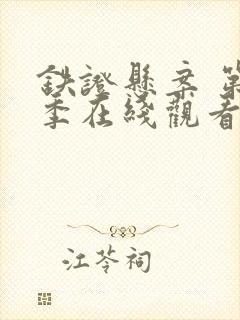 鉄證懸案 第
季在綫觀看
江苓祠